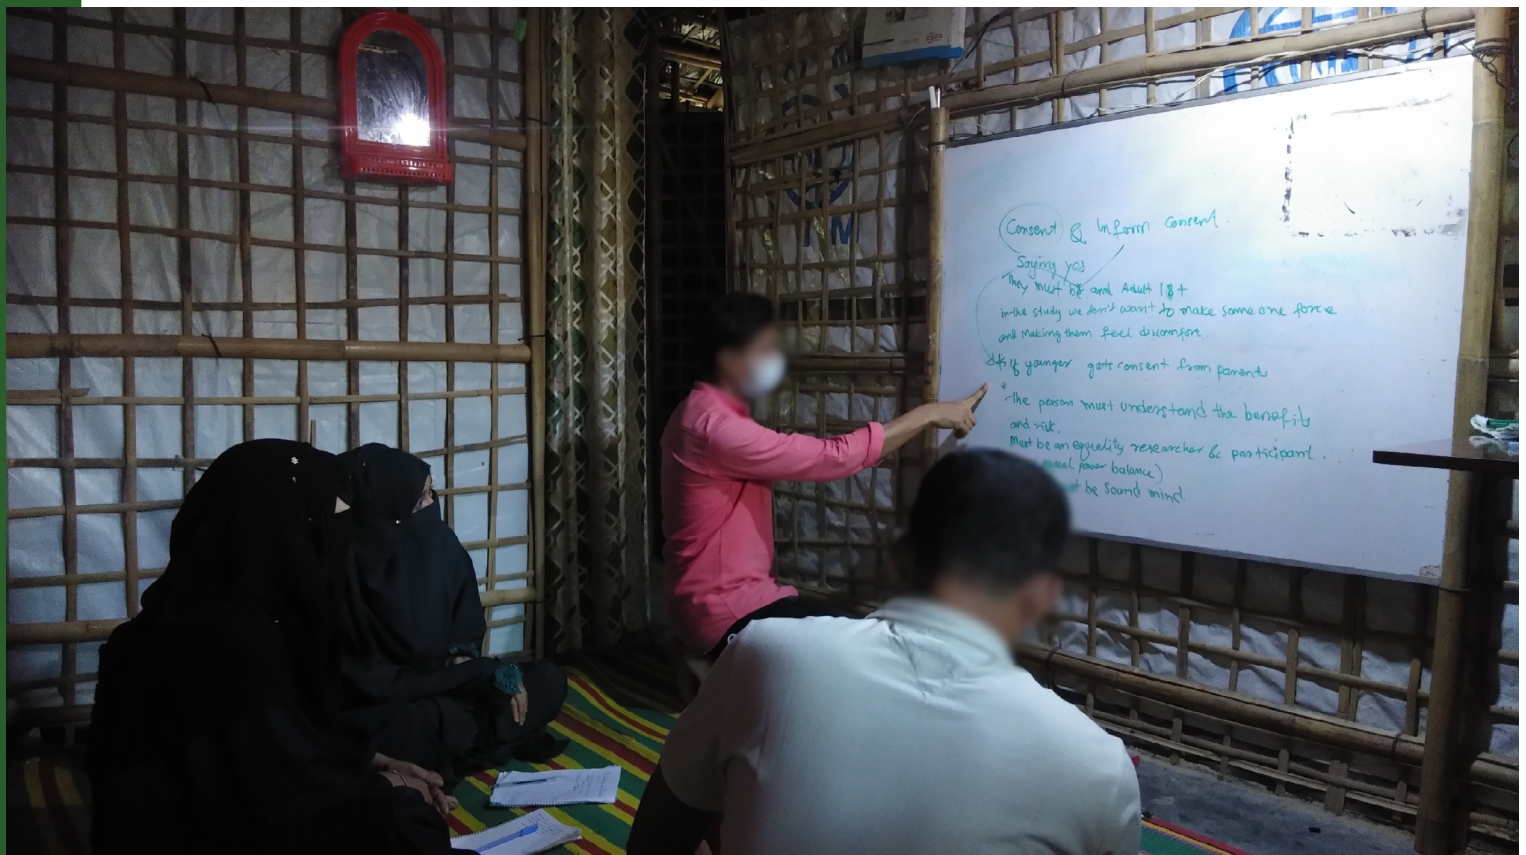 Consent & Inform Consent.
Saying yes
They must be and Adult 18+
in the study we don't want to make some one force
and making them feel discomfort.
If younger gets consent from parents
The person must understand the benefits
and risk.
Must be an equality researcher & participant.
power balance)
be sound mind.